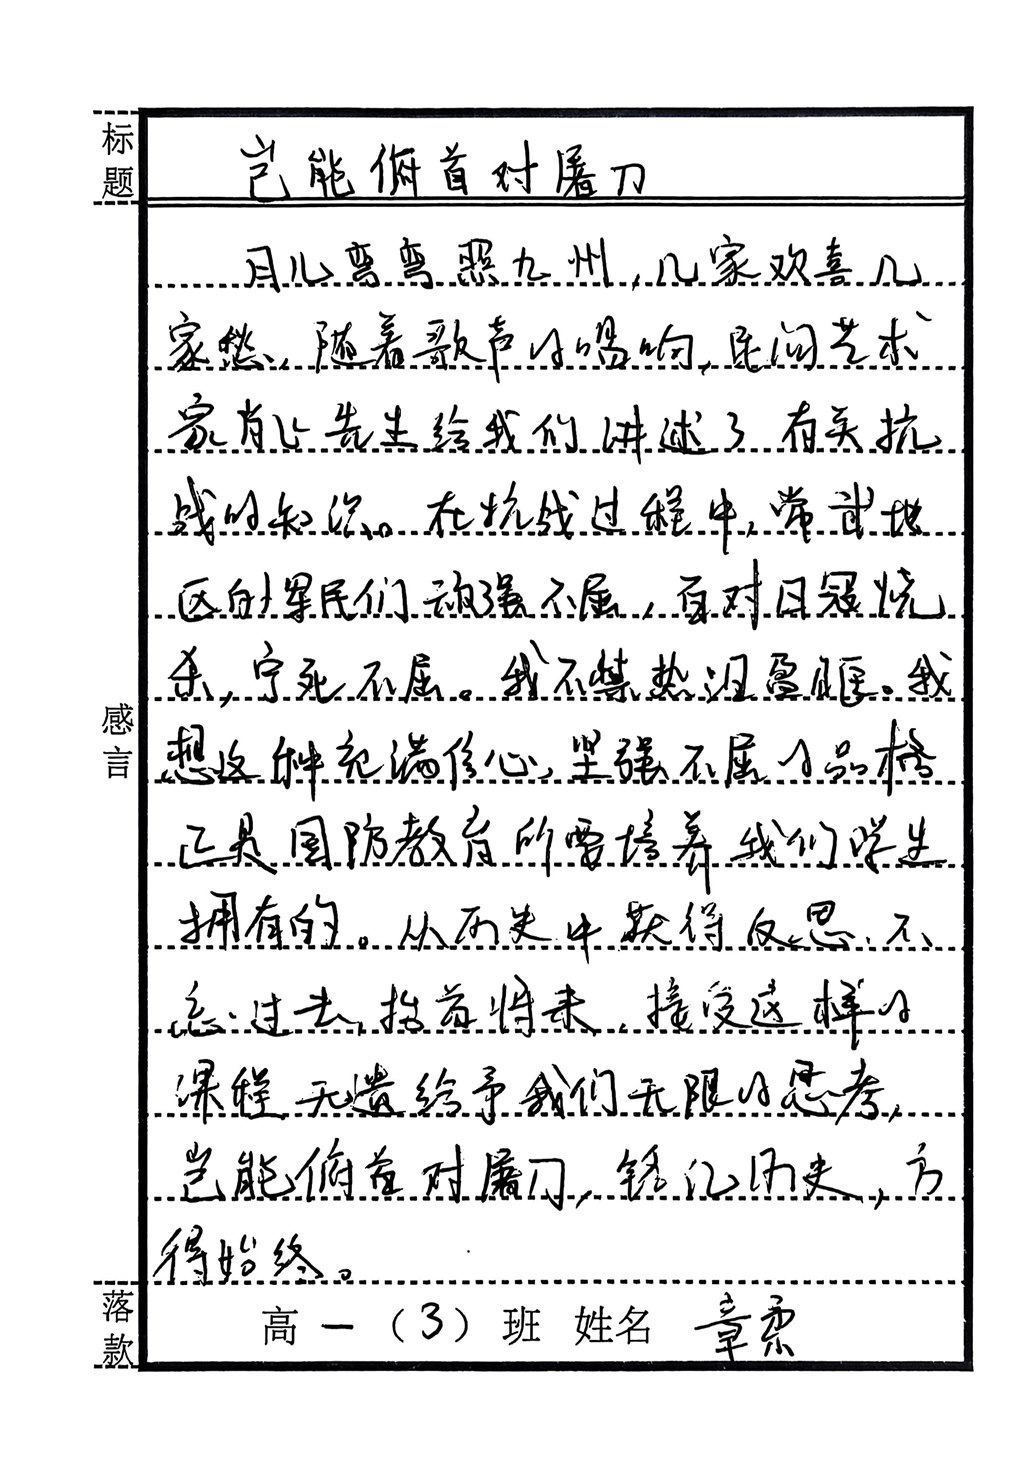 标题
岂能俯首对屠刀
月儿弯弯照九州,几家欢喜几
家愁、随着歌声的唱响,民间艺术
家肖 先生给我们讲述了有关抗
战的知识。在抗战过程中,常武地
区的军民们顽强不屈,面对日寇烧
杀,宁死不屈。我不禁热泪盈眶。我
想这种充满信心、坚强不屈的品格
正是国防教育所要培养我们学生
拥有的。从历史中获得反思、不
忘过去, 将来,接受这样的
课程无遗给予我们无限的思考,
岂能俯首对屠刀,铭记历史,方
得始终。
感言
落款
高一(3)班 姓名 章柔